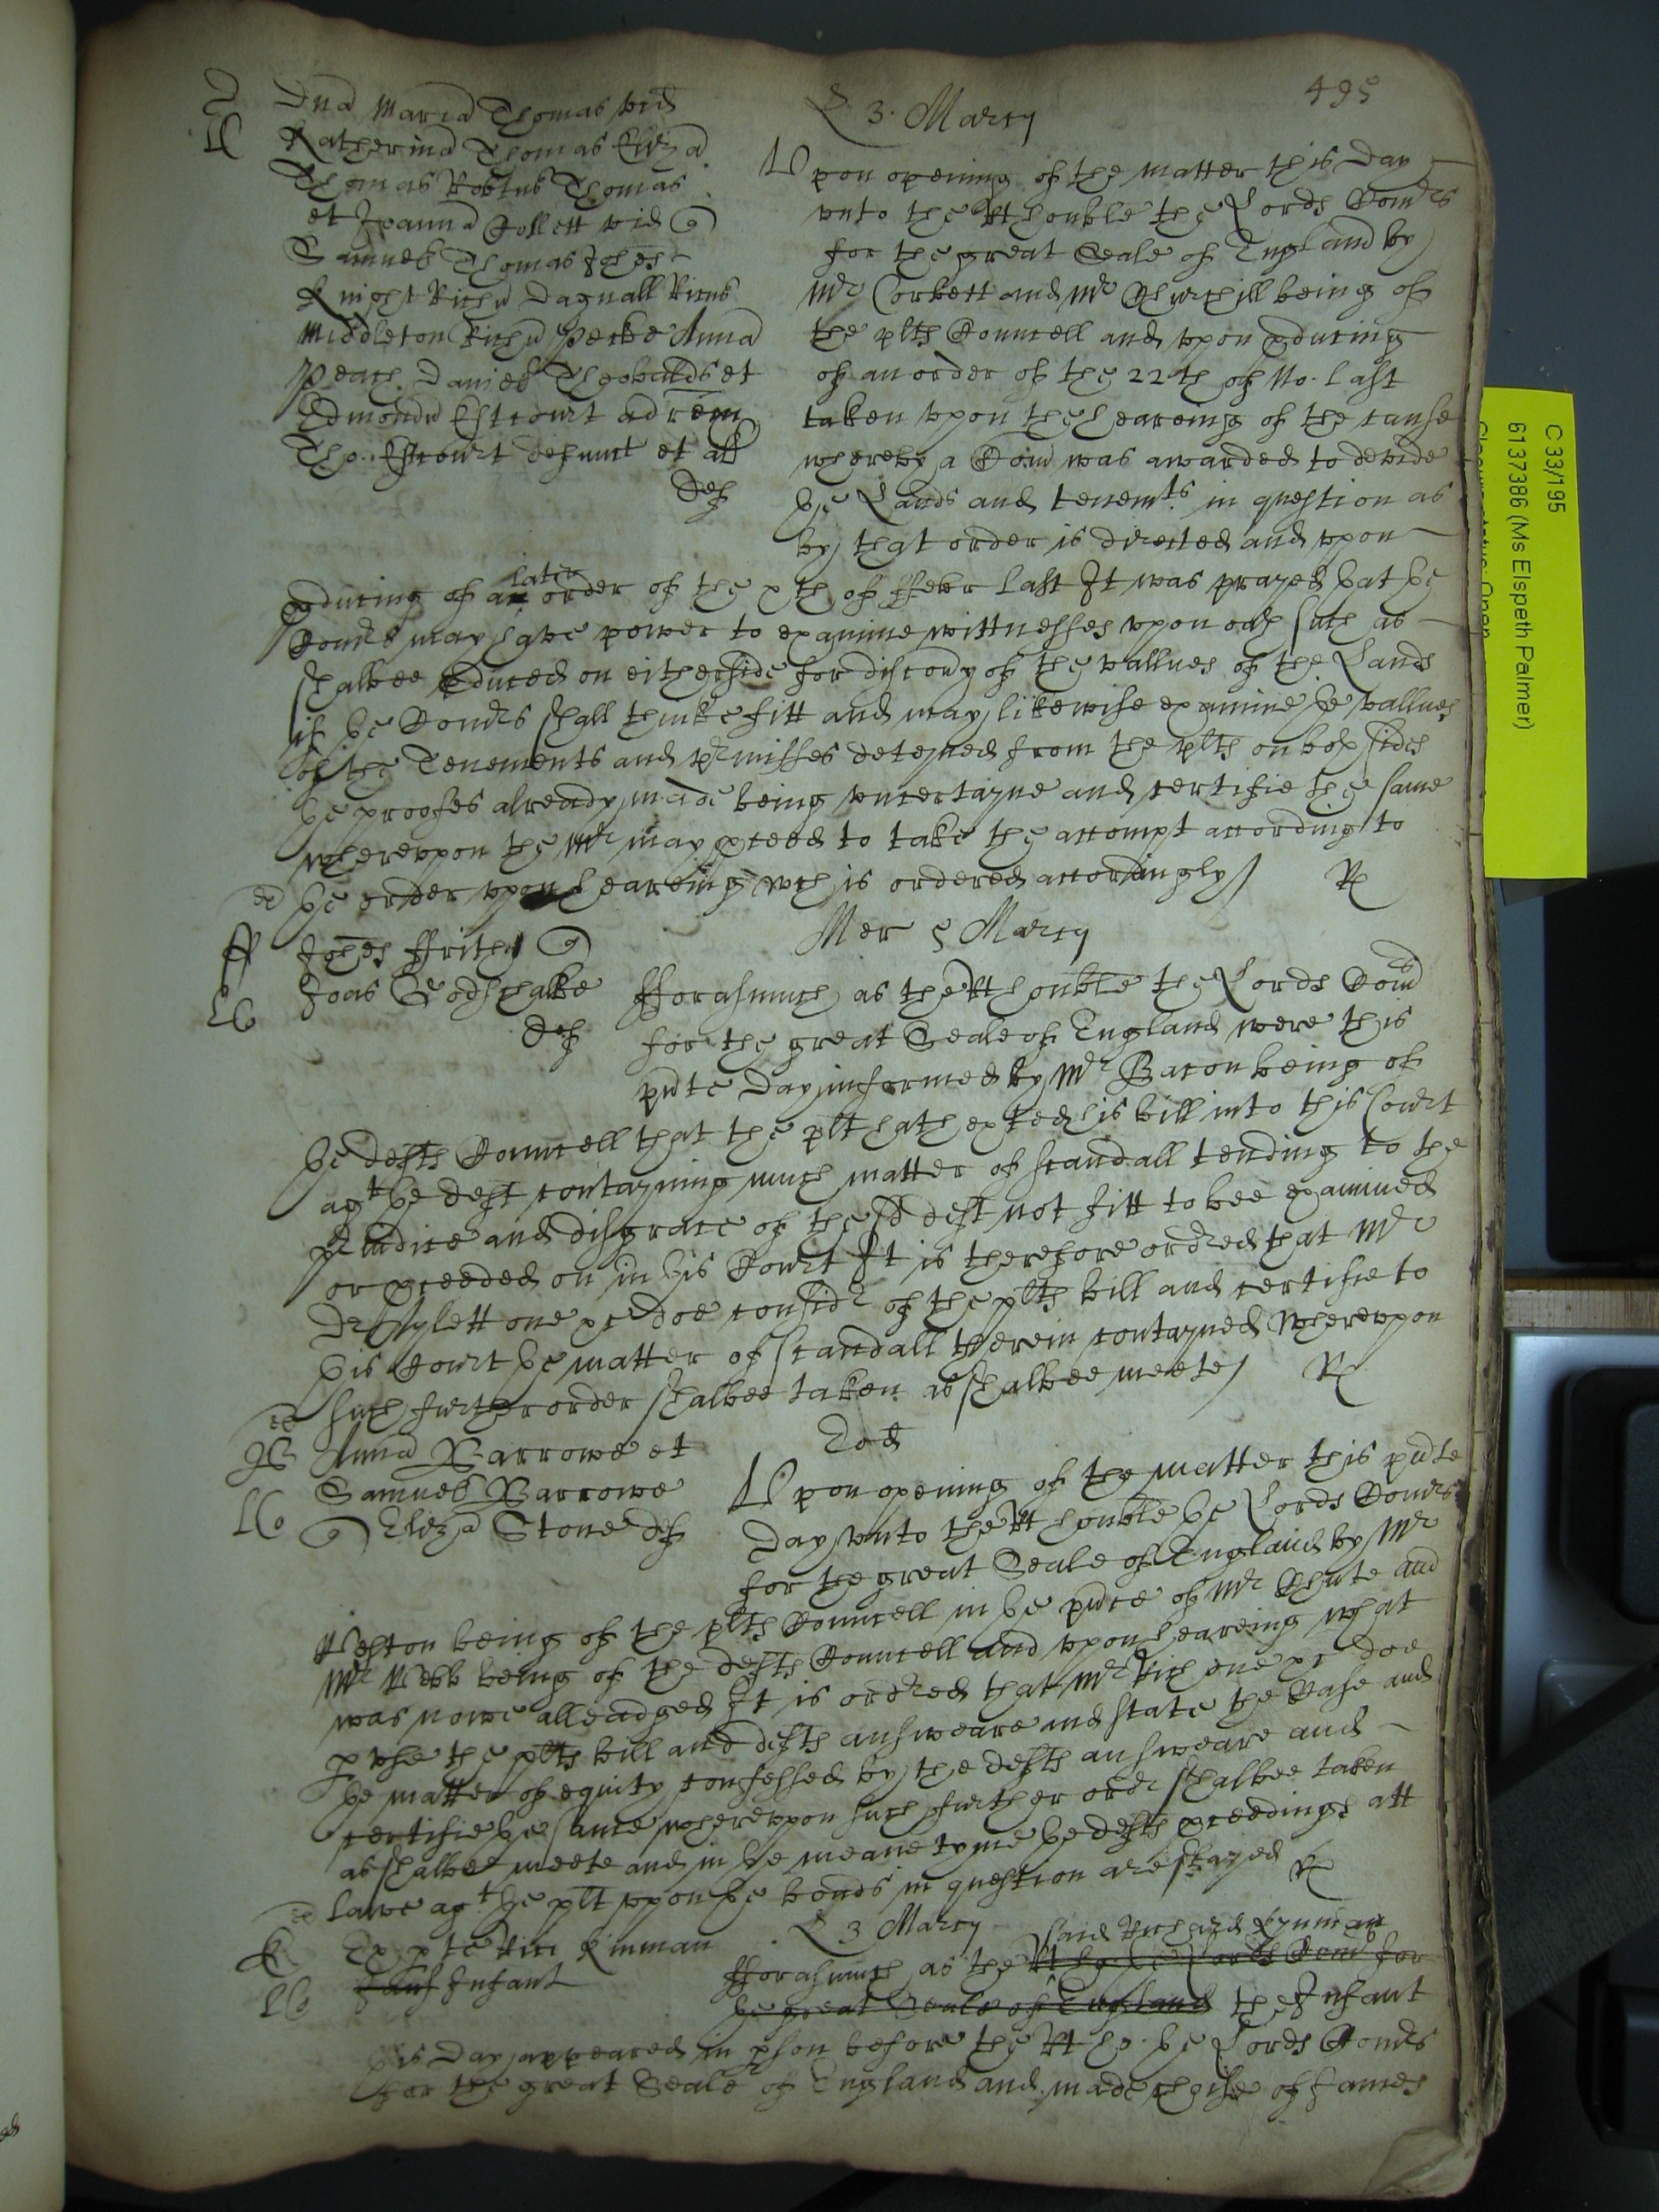 495
L 3. Marcij
Dna Maria Thomas vid
Katherina Thomas Eliz a
Thomas Robtus Thomas
et Joanna Collett vid
Samuel Thomas Johes
Knight Richu Dagnall Ricus
Middleton Richu Pecke Anna
Peach Daniel Theobalds et
Edmondu Estcourt ad rem
Tho. Estcourt defunct et al
Def
Vpon opening of the matter this day
vnto the Rt honble the Lords Comrs
for the great Seale of England by
Mr Corbett and Mr Churchill being of
the plts Councell and vpon pducing
of an order of the 22th of No. last
taken vpon the heareing of the cause
whereby a Com was awarded to devide
ye Lands and tenemts in question as
by that order is directed and vpon
pducing of a later order of the xth of ffebr last It was prayed yat ye
Comrs may have power to examine wittnesses vpon oath such as
shalbee pduced on either side for discovy of the vallues of the Lands
if ye Comrs shall thinke fitt and may likewise examine ye vallues
of the Tenements and prmisses deteyned from the plts on both sides
ye proofes already made being vncertayne and certifie the same
wherevpon the Mr may pceed to take the accompt according to
ye order vpon heareing wch is ordered accordingly R
Mer 5 Marcij
Johes ffrith
Joas Godschalke
Def
fforasmuch as the Rt honble the Lords Com
for the great Seale of England were this
pnte day informed by Mr Bacon being of
ye defts Councell that the plt hath exted his bill into this Court
agt ye deft contayning much matter of scandall tending to the
priudice and disgrace of the sd deft not fitt to bee examined
or pceeded on in this Court It is therefore ordred that Mr
Dr Aylett one &c doe considr of the plts bill and certifie to
this Court ye matter of scandall therein contayned Wherevpon
such further order shalbee taken as shalbee meete R
Eod
Anna Barrowe et
Samuel Barrowe
Eliz a Stone def
Vpon opening of the matter this pnte
day vnto the Rt honble ye Lords Comrs
for the great Seale of England by Mr
Weston being of the plts Councell in ye pnce of Mr Chute and
Mr Webb being of the defts Councell and vpon heareing what
was nowe alleadged It is ordred that Mr Rich one &c doe
pvse the plts bill and defts answeare and state the Case and
ye matter of equity confessed by the defts answeare and
certifie ye same wherevpon such further ordr shalbee taken
as shalbee meete and in ye meane tyme ye defts pceedings att
lawe agt the plt vpon ye bonds in question are stayed R
L 3 Marcij
Ex pte Rici Kinman
Infant
said Richard Kynman
fforasmuch as the Rt ho. ye Lords Comrs for
ye great Seale of England the Infant
this day appeared in pson before the Rt ho. ye Lords Comrs
for the great Seale of England and made choise of James
C 33/195
6137386 (Ms Elspeth Palmer)